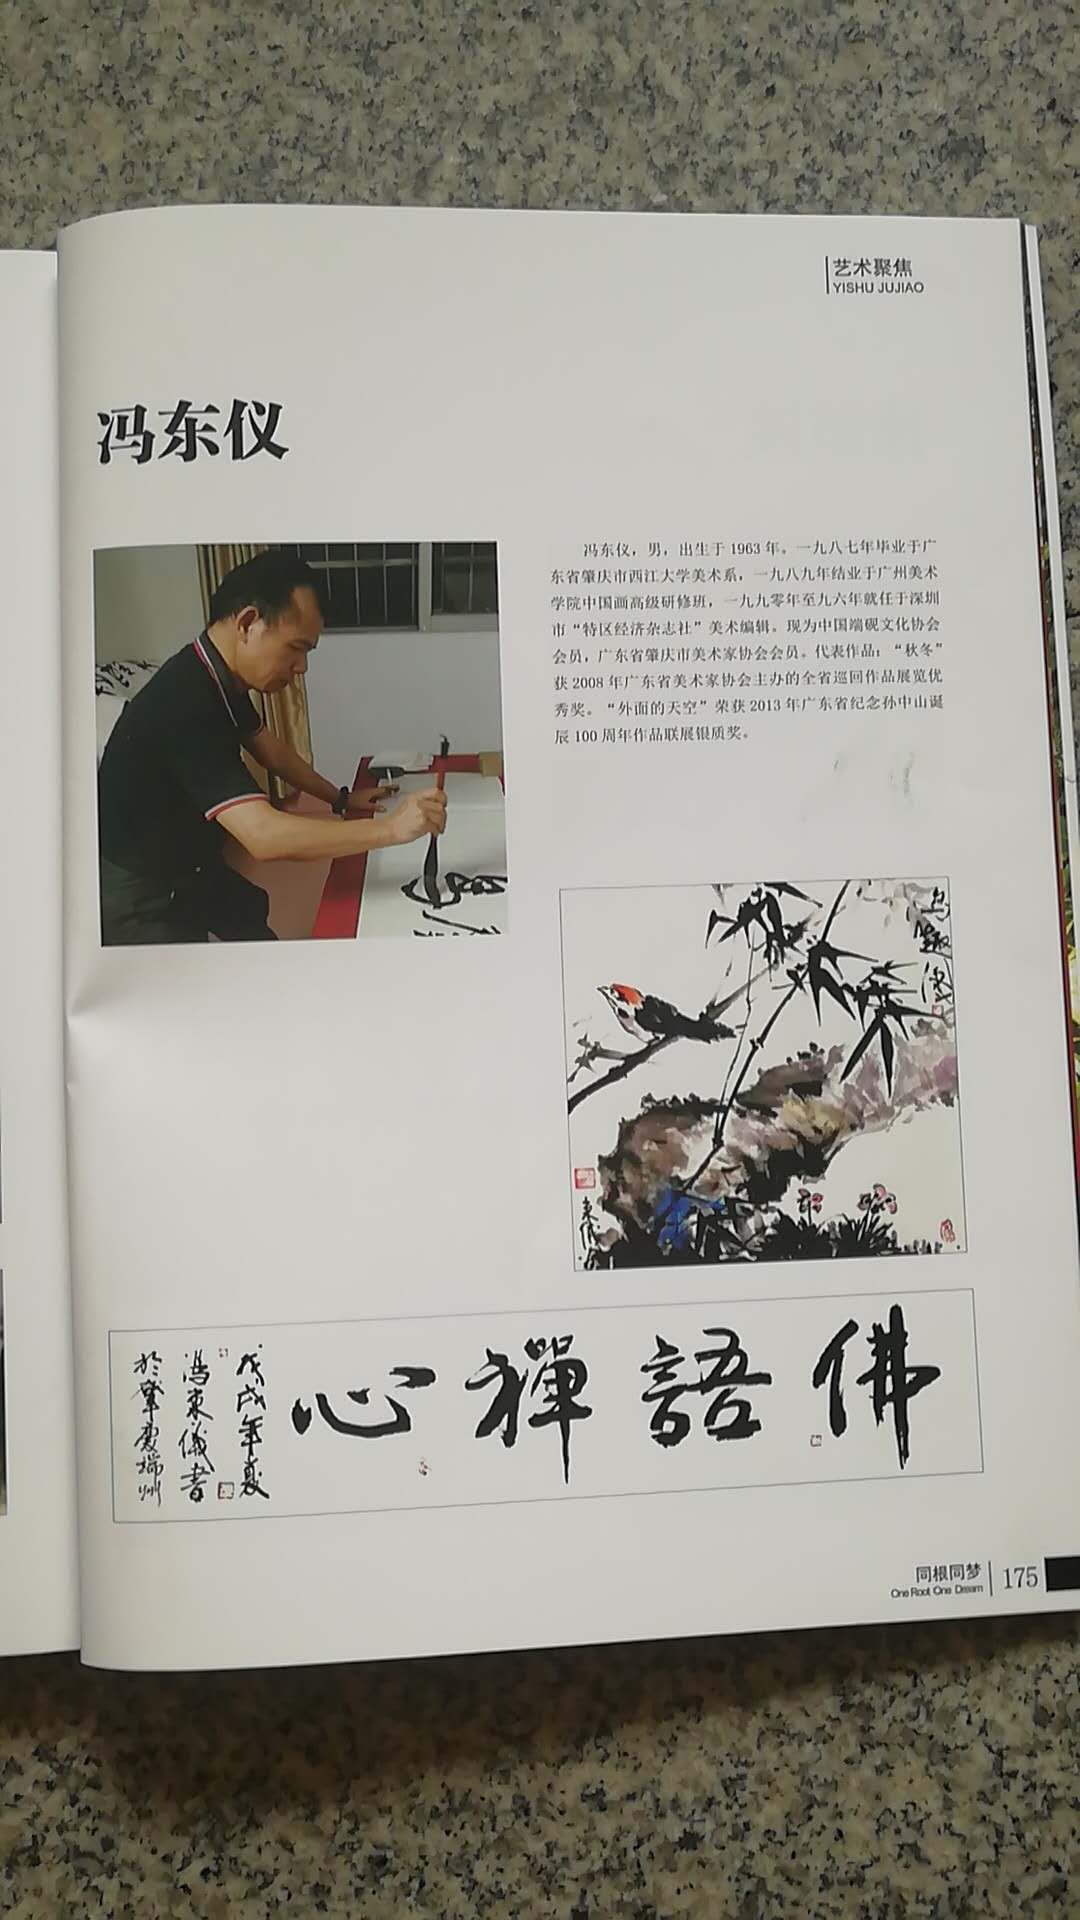 艺术聚焦
YISHU JUJIAO
冯东仪
冯东仪，男，出生于1963年。一九八七年毕业于广
东省肇庆市西江大学美术系，一九八九年结业于广州美术
学院中国画高级研修班，一九九零年至九六年就任于深圳
市“特区经济杂志社”美术编辑。现为中国端砚文化协会
会员，广东省肇庆市美术家协会会员。代表作品：“秋冬”
获2008年广东省美术家协会主办的全省巡回作品展览优
秀奖。“外面的天空”荣获2013年广东省纪念孙中山诞
辰100周年作品联展银质奖。
佛語禪心
戊戌年夏
馮東儀書
於肇慶端州
同根同梦
One Root One Dream
175